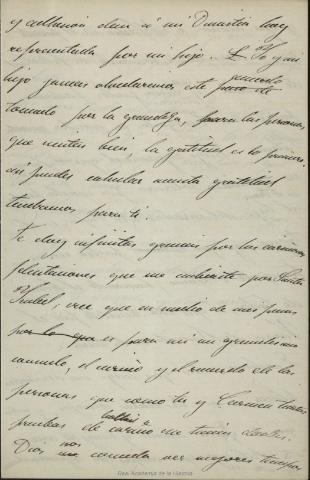 y adhesion dan á mi Dinastia hoy
representada por mi hijo. Yo y mi
hijo jamas olvidaremos este acuerdo
tomado por la grandeza, para las personas
que sienten bien, la gratitud es lo primero,
asi puedes calcular cuanta gratitud
tendremos para ti.
Te doy infinitas gracias por las cariñosas
felicitaciones que me enviaste por Santa
Isabel; cree que en medio de mis penas
por lo que es para mi un grandisimo
consuelo, el cariño y el recuerdo de las
personas que como tu y Carmen tantas
pruebas de lealtad y cariño me teneis dadas.
Dios nos conceda ver mejores tiempos
Real Academia de la Historia